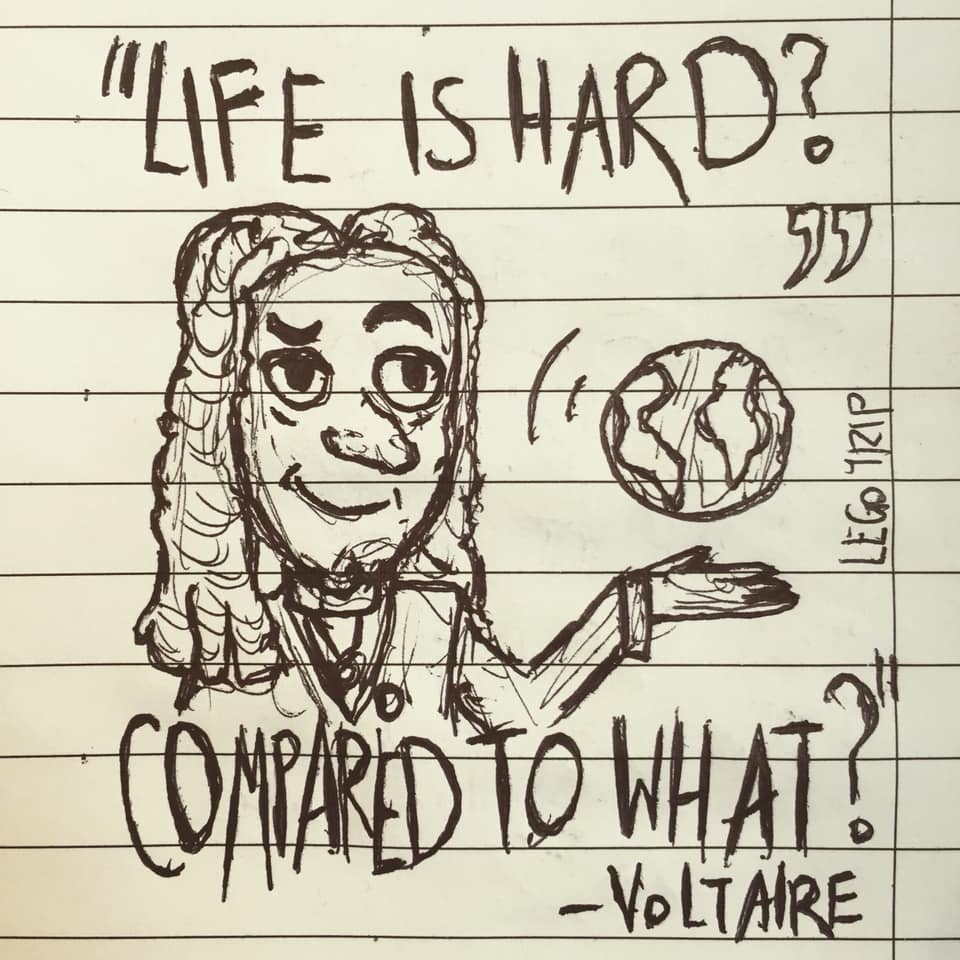 "LIFE IS HARD?
”
LEGO TRIP
COMPARED TO WHAT?"
-VOLTAIRE